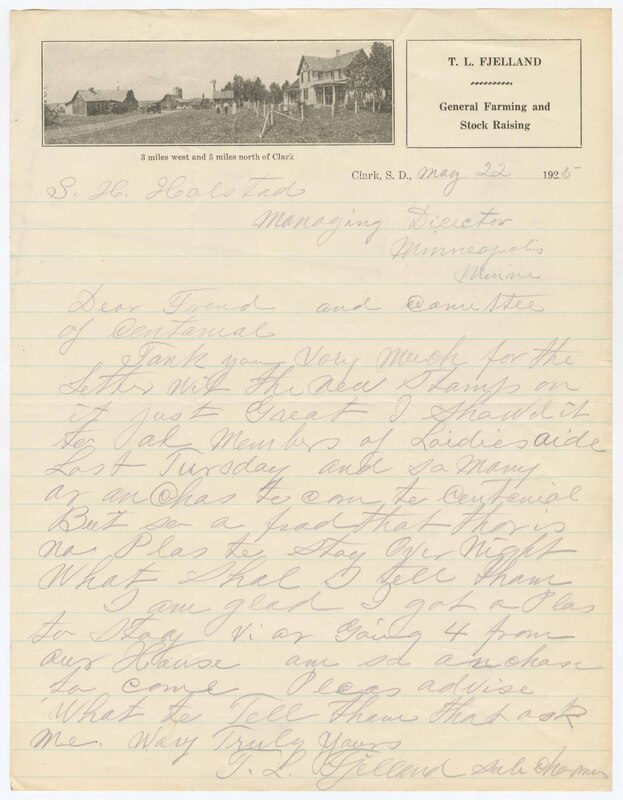 T. L. FJELLAND
General Farming and
Stock Raising
3 miles west and 5 miles north of Clark
Clark, S. D., May 22 1925
S. H. Holstad
Managing Director
Minneapolis
Minne
Dear Frend and Comettee
of Centanial
Tank you Vary Much for the
Letter Wit the New Stamps on
it just Great I Showd it
to al Members of Laidies aide
Last Tursday and so Many
ar anchas te com te Centanial
But so a frad that thor is
no Plas te Stay Over Night
What Shal I tell tham
I am glad I got a Plas
to Stay Vi ar Going 4 from
our House am so anchas
to come Pleas advise
What te Tell tham that ask
me. Wary Truly Yours
T. L. Fjelland sub